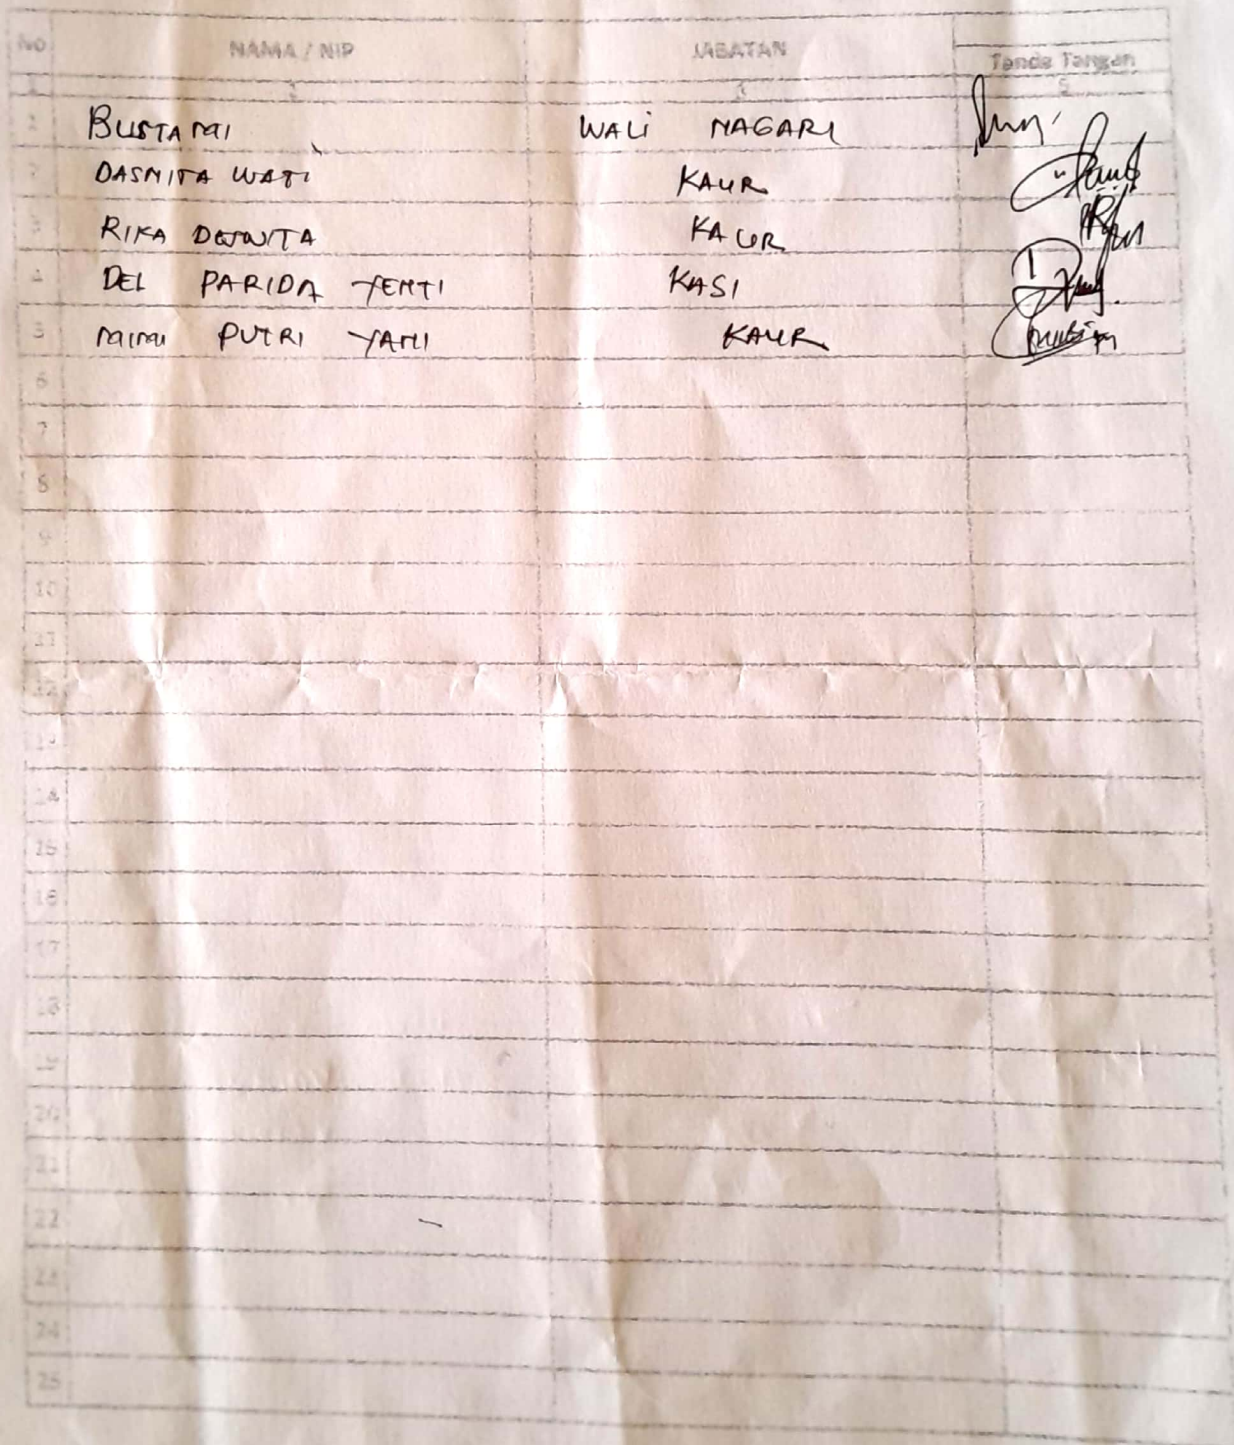 No NAMA / NIP JABATAN Tanda Tangan
1 2 3 5
1 BUSTAMI WALI NAGARI
2 DASMITA WATI KAUR
3 RIKA KAUR
4 DEL PARIDA YENTI KASI
5 MIMI PUTRI YANI KAUR
6
7
8
9
10
11
12
13
14
15
16
17
18
19
20
21
22
23
24
25